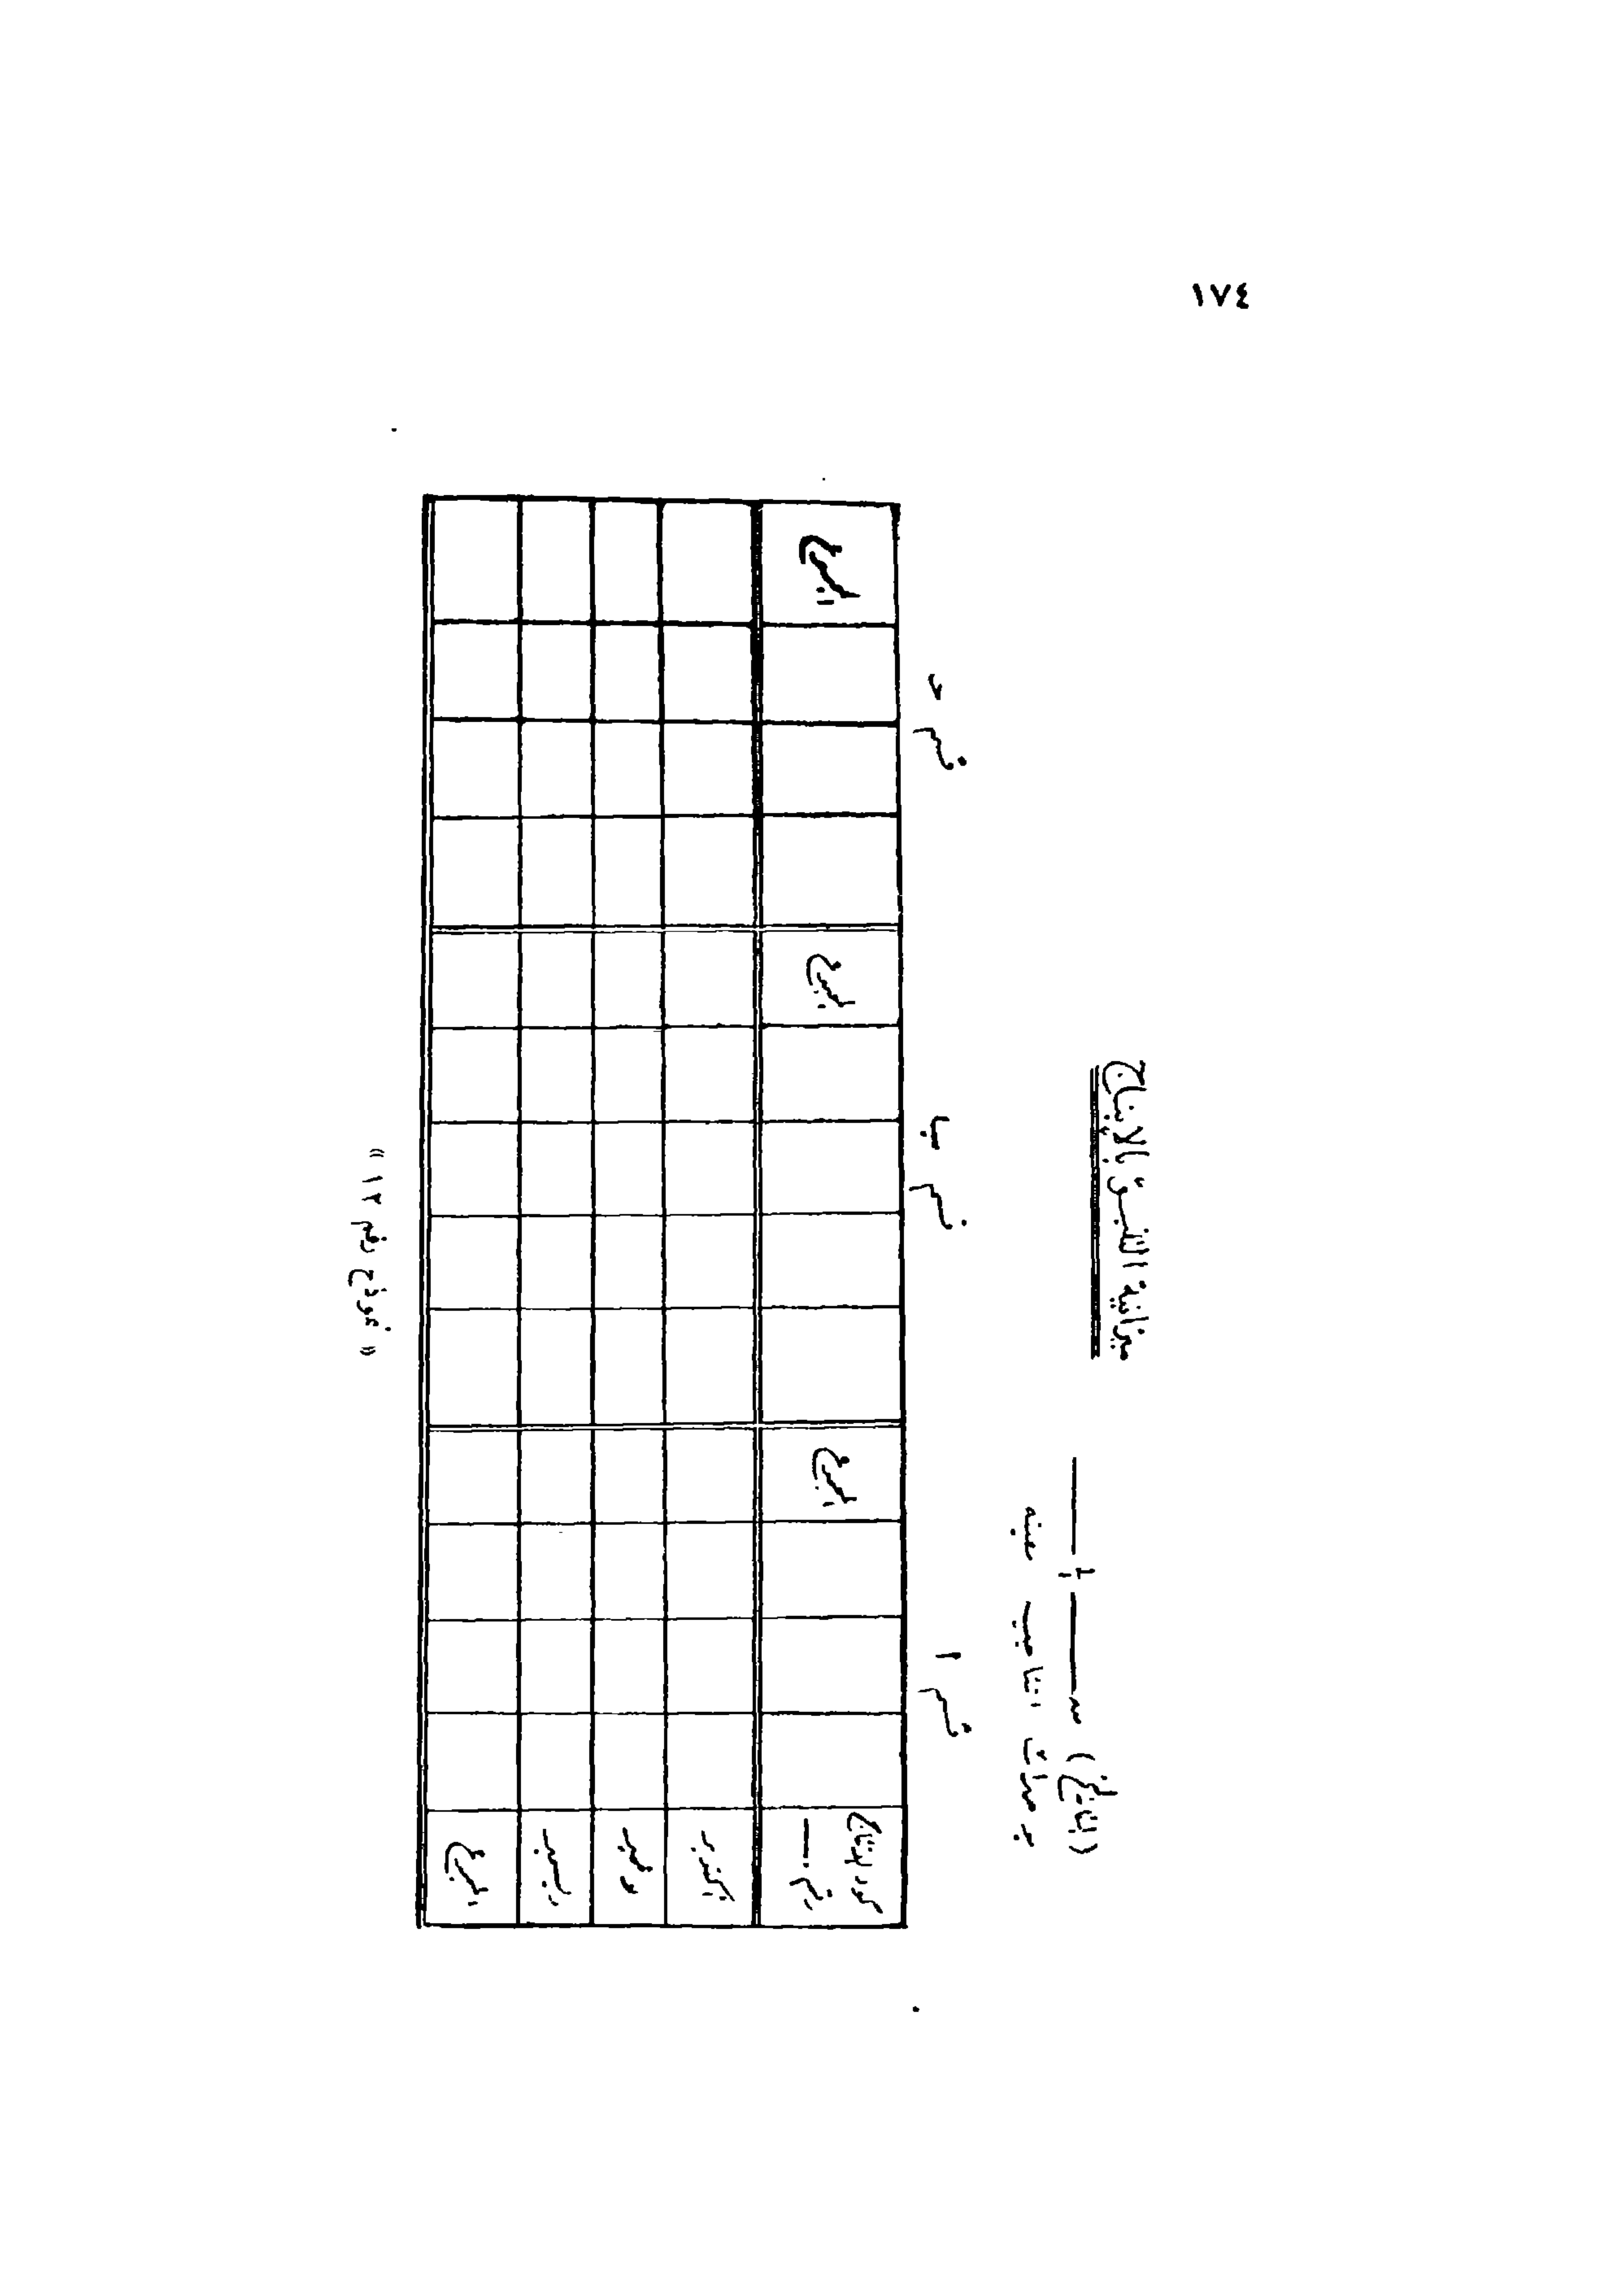 ١٧٤
ميزانية التنبؤ بالإنتاج
بوحدات انتاجيه معينه
قسم ا
قسم ب
قسم د
كود الانتاج
رقم
المجموع
المجموع
المجموع
اكتوبر
نوفمبر
ديسمبر
المجموع
« نموذج رقم ١٢ »